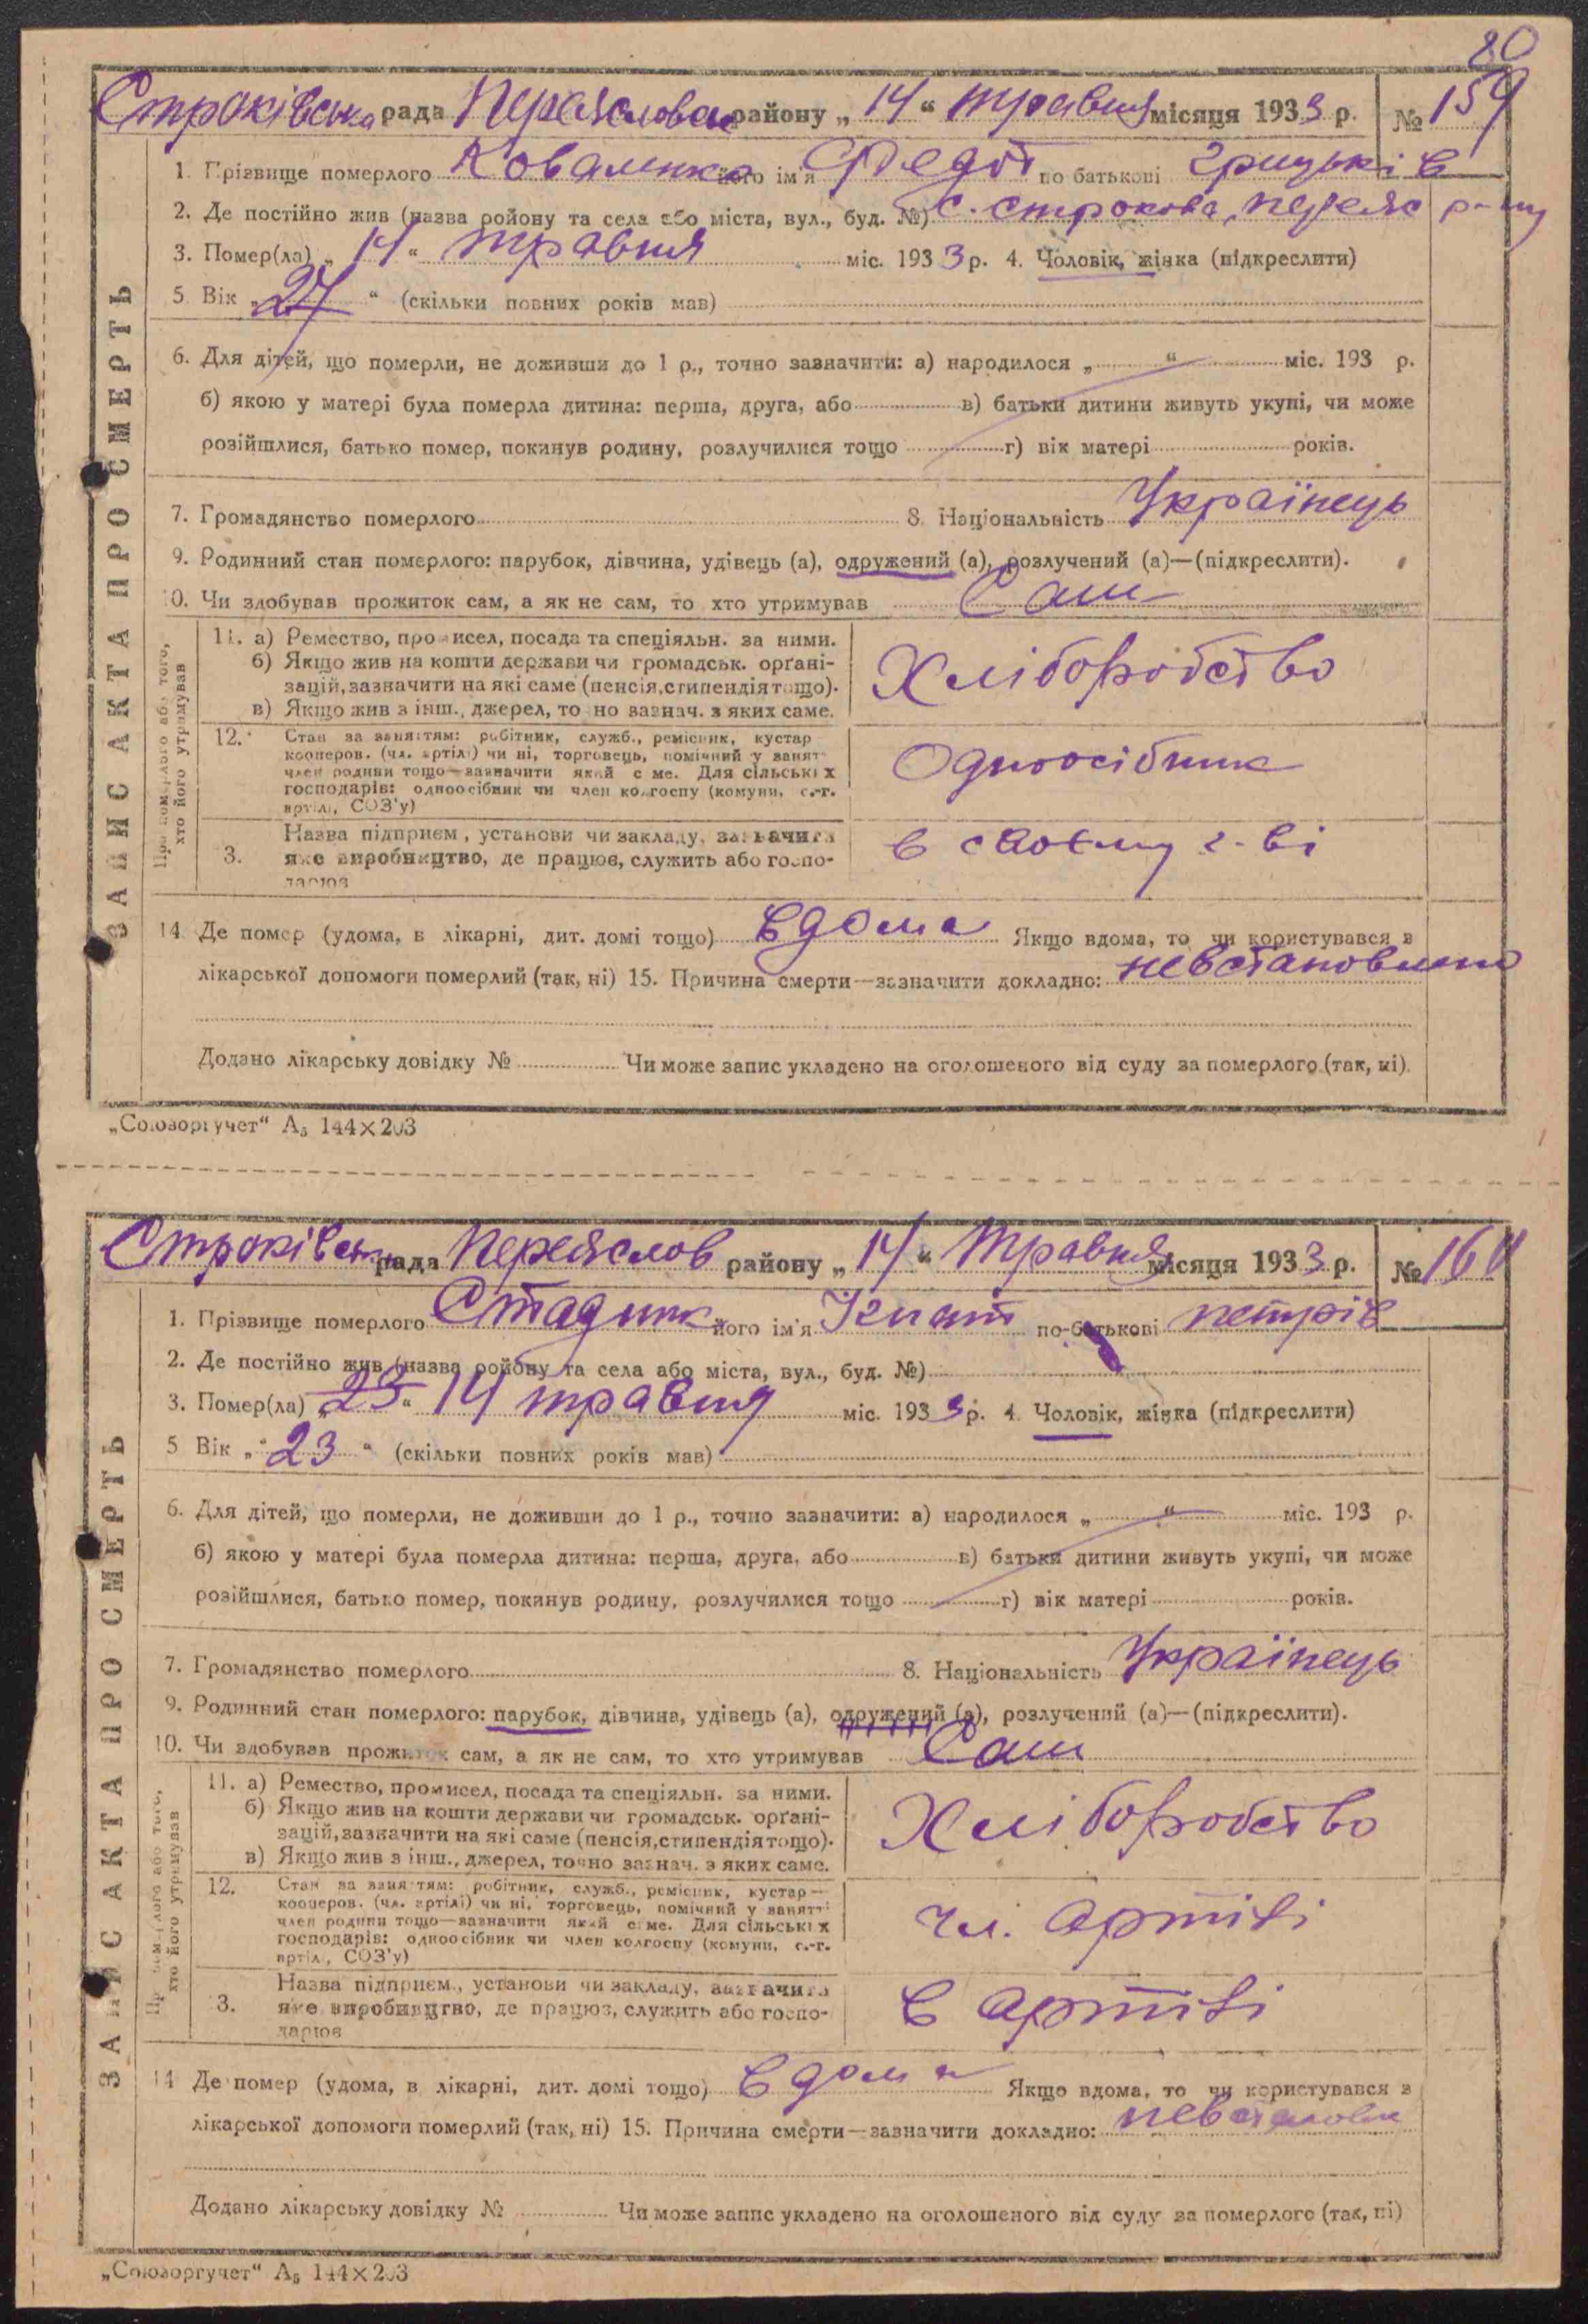 80
Строківська рада Переяслов району „ 14 “ травня місяця 1933 р. № 159
1. Прізвище померлого Коваленко його ім'я Федот по батькові Грицьків
2. Де постійно жив (назва ройону та села або міста, вул., буд. №) с. строкова, переяс р-ну
3. Помер(ла) „ 14 “ травня міс. 1933 р. 4. Чоловік, жінка (підкреслити)
5 Вік „ 27 “ (скільки повних років мав)
6. Для дітей, що померли, не доживши до 1 р., точно зазначити: а) народилося „ “ міс. 193 р.
б) якою у матері була померла дитина: перша, друга, або в) батьки дитини живуть укупі, чи може
розійшлися, батько помер, покинув родину, розлучилися тощо г) вік матері років.
7. Громадянство померлого 8. Національність Українець
9. Родинний стан померлого: парубок, дівчина, удівець (а), одружений (а), розлучений (а)—(підкреслити).
10. Чи здобував прожиток сам, а як не сам, то хто утримував Сам
ЗАПИС АКТА ПРО СМЕРТЬ
Про померлого або того,
хто його утримував
11. а) Ремество, промисел, посада та спеціяльн. за ними.
б) Якщо жив на кошти держави чи громадськ. орґані-
зацій, зазначити на які саме (пенсія, стипендія тощо).
в) Якщо жив з інш., джерел, точно зазнач. з яких саме.
Хліборобство
12. Стан за заняттям: робітник, служб., ремісник, кустар
кооперов. (чл. артілі) чи ні, торговець, помічний у занят
член родини тощо—зазначити який саме. Для сільських
господарів: одноосібник чи член колгоспу (комуни, с.-г.
артілі, СОЗ'у)
Одноосібник
3. Назва підприєм., установи чи закладу, зазначити
яке виробництво, де працюв, служить або госпо-
дарюв
в своєму г-ві
14. Де помер (удома, в лікарні, дит. домі тощо) вдома Якщо вдома, то чи користувався з
лікарської допомоги померлий (так, ні) 15. Причина смерти—зазначити докладно: невстановлено
Додано лікарську довідку № Чи може запис укладено на оголошеного від суду за померлого (так, ні).
„Союзоргучет“ А5 144×203
Строківська рада Переяслов району „ 14 “ Травня місяця 1933 р. № 160
1. Прізвище померлого Стадник його ім'я Ігнат по-батькові петрів
2. Де постійно жив (назва ройону та села або міста, вул., буд. №)
3. Помер(ла) „ 23 “ 14 травня міс. 1933 р. 4. Чоловік, жінка (підкреслити)
5 Вік „ 23 “ (скільки повних років мав)
6. Для дітей, що померли, не доживши до 1 р., точно зазначити: а) народилося „ “ міс. 193 р.
б) якою у матері була померла дитина: перша, друга, або в) батьки дитини живуть укупі, чи може
розійшлися, батько помер, покинув родину, розлучилися тощо г) вік матері років.
7. Громадянство померлого 8. Національність Українець
9. Родинний стан померлого: парубок, дівчина, удівець (а), одружений (а), розлучений (а)—(підкреслити).
10. Чи здобував прожиток сам, а як не сам, то хто утримував Сам
ЗАПИС АКТА ПРО СМЕРТЬ
Пр померлого або того,
хто його утримував
11. а) Ремество, промисел, посада та спеціяльн. за ними.
б) Якщо жив на кошти держави чи громадськ. орґані-
зацій, зазначити на які саме (пенсія, стипендія тощо).
в) Якщо жив з інш., джерел, точно зазнач. з яких саме.
Хліборобство
12. Стан за заняттям: робітник, служб., ремісник, кустар—
кооперов. (чл. артілі) чи ні, торговець, помічний у занятті
член родини тощо—зазначити який саме. Для сільських
господарів: одноосібник чи член колгоспу (комуни, с.-г.
артіл, СОЗ'у)
чл. артілі
3. Назва підприєм., установи чи закладу, зазначити
яке виробництво, де працюв, служить або госпо-
дарюв
в артілі
14 Де помер (удома, в лікарні, дит. домі тощо) вдома Якщо вдома, то чи користувався з
лікарської допомоги померлий (так, ні) 15. Причина смерти—зазначити докладно: невстановл
Додано лікарську довідку № Чи може запис укладено на оголошеного від суду за померлого (так, ні)
„Союзоргучет“ А5 144×203